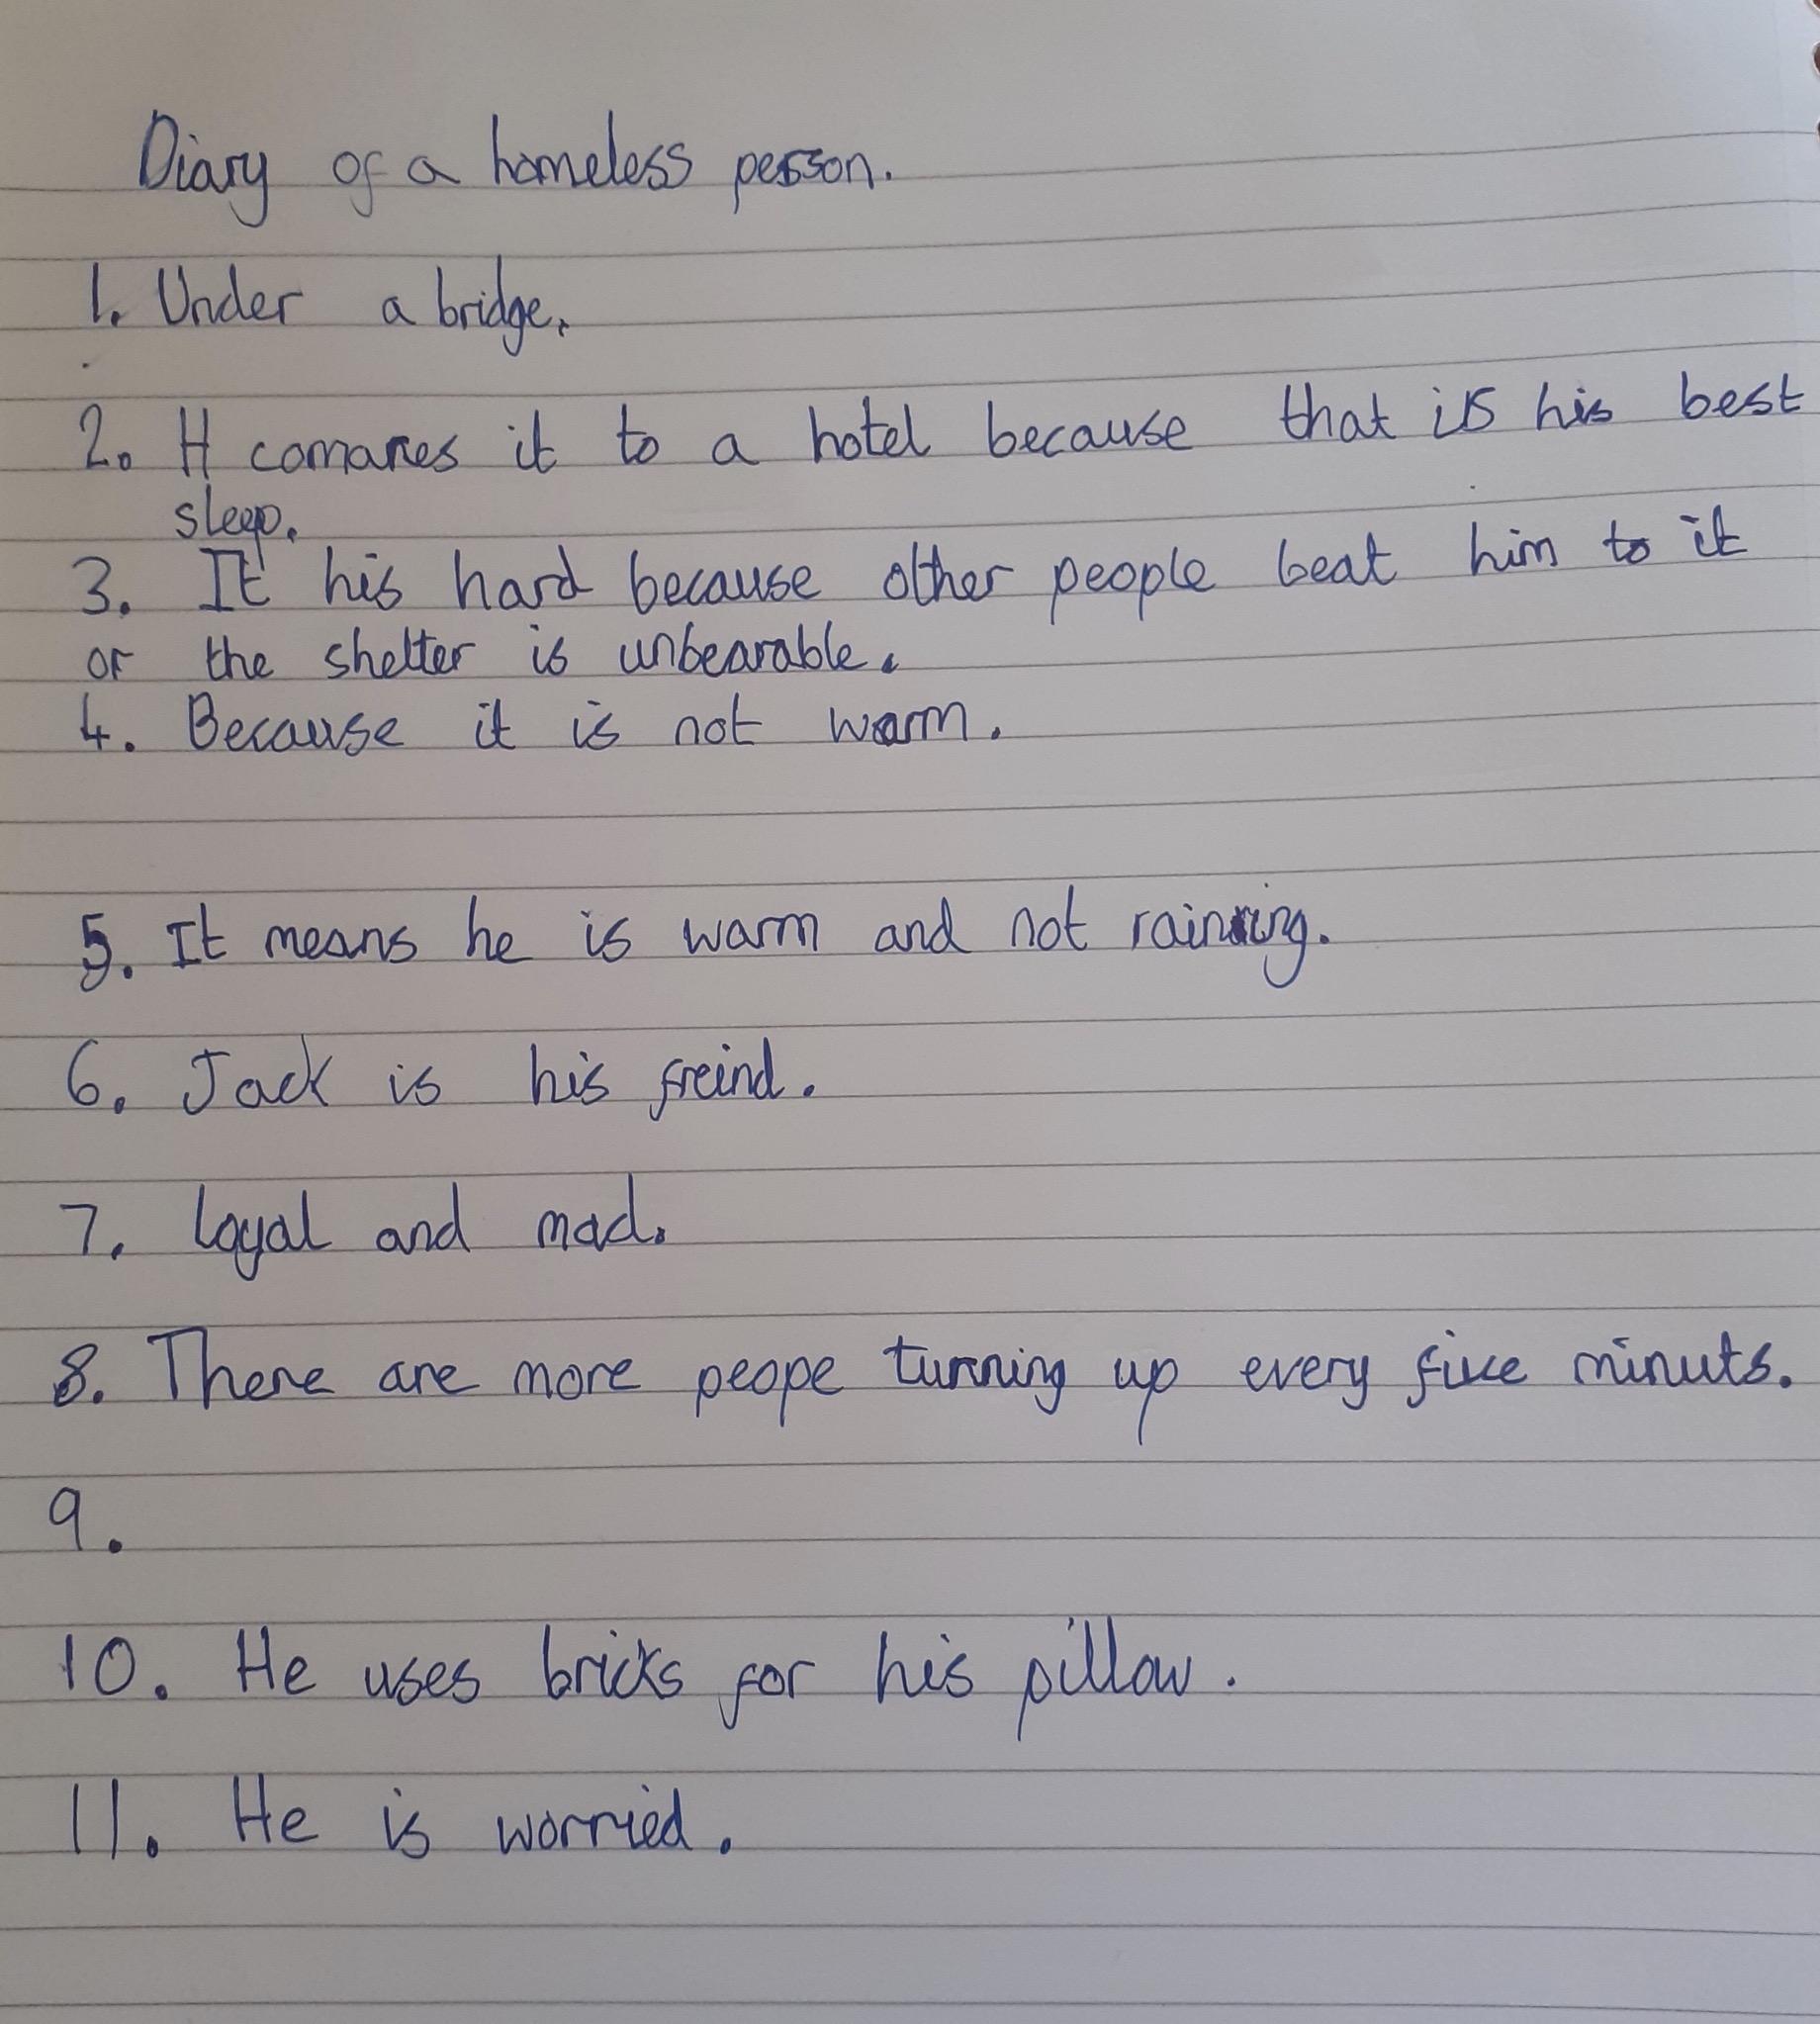 Diary of a homeless person.
1. Under a bridge.
2. H comares it to a hotel because that is his best
sleep.
3. It his hard because other people beat him to it
or the shelter is unbearable.
4. Because it is not warm.
5. It means he is warm and not raining.
6. Jack is his freind.
7. Loyal and mad.
8. There are more peope turning up every five minuts.
9.
10. He uses bricks for his pillow.
11. He is worried.